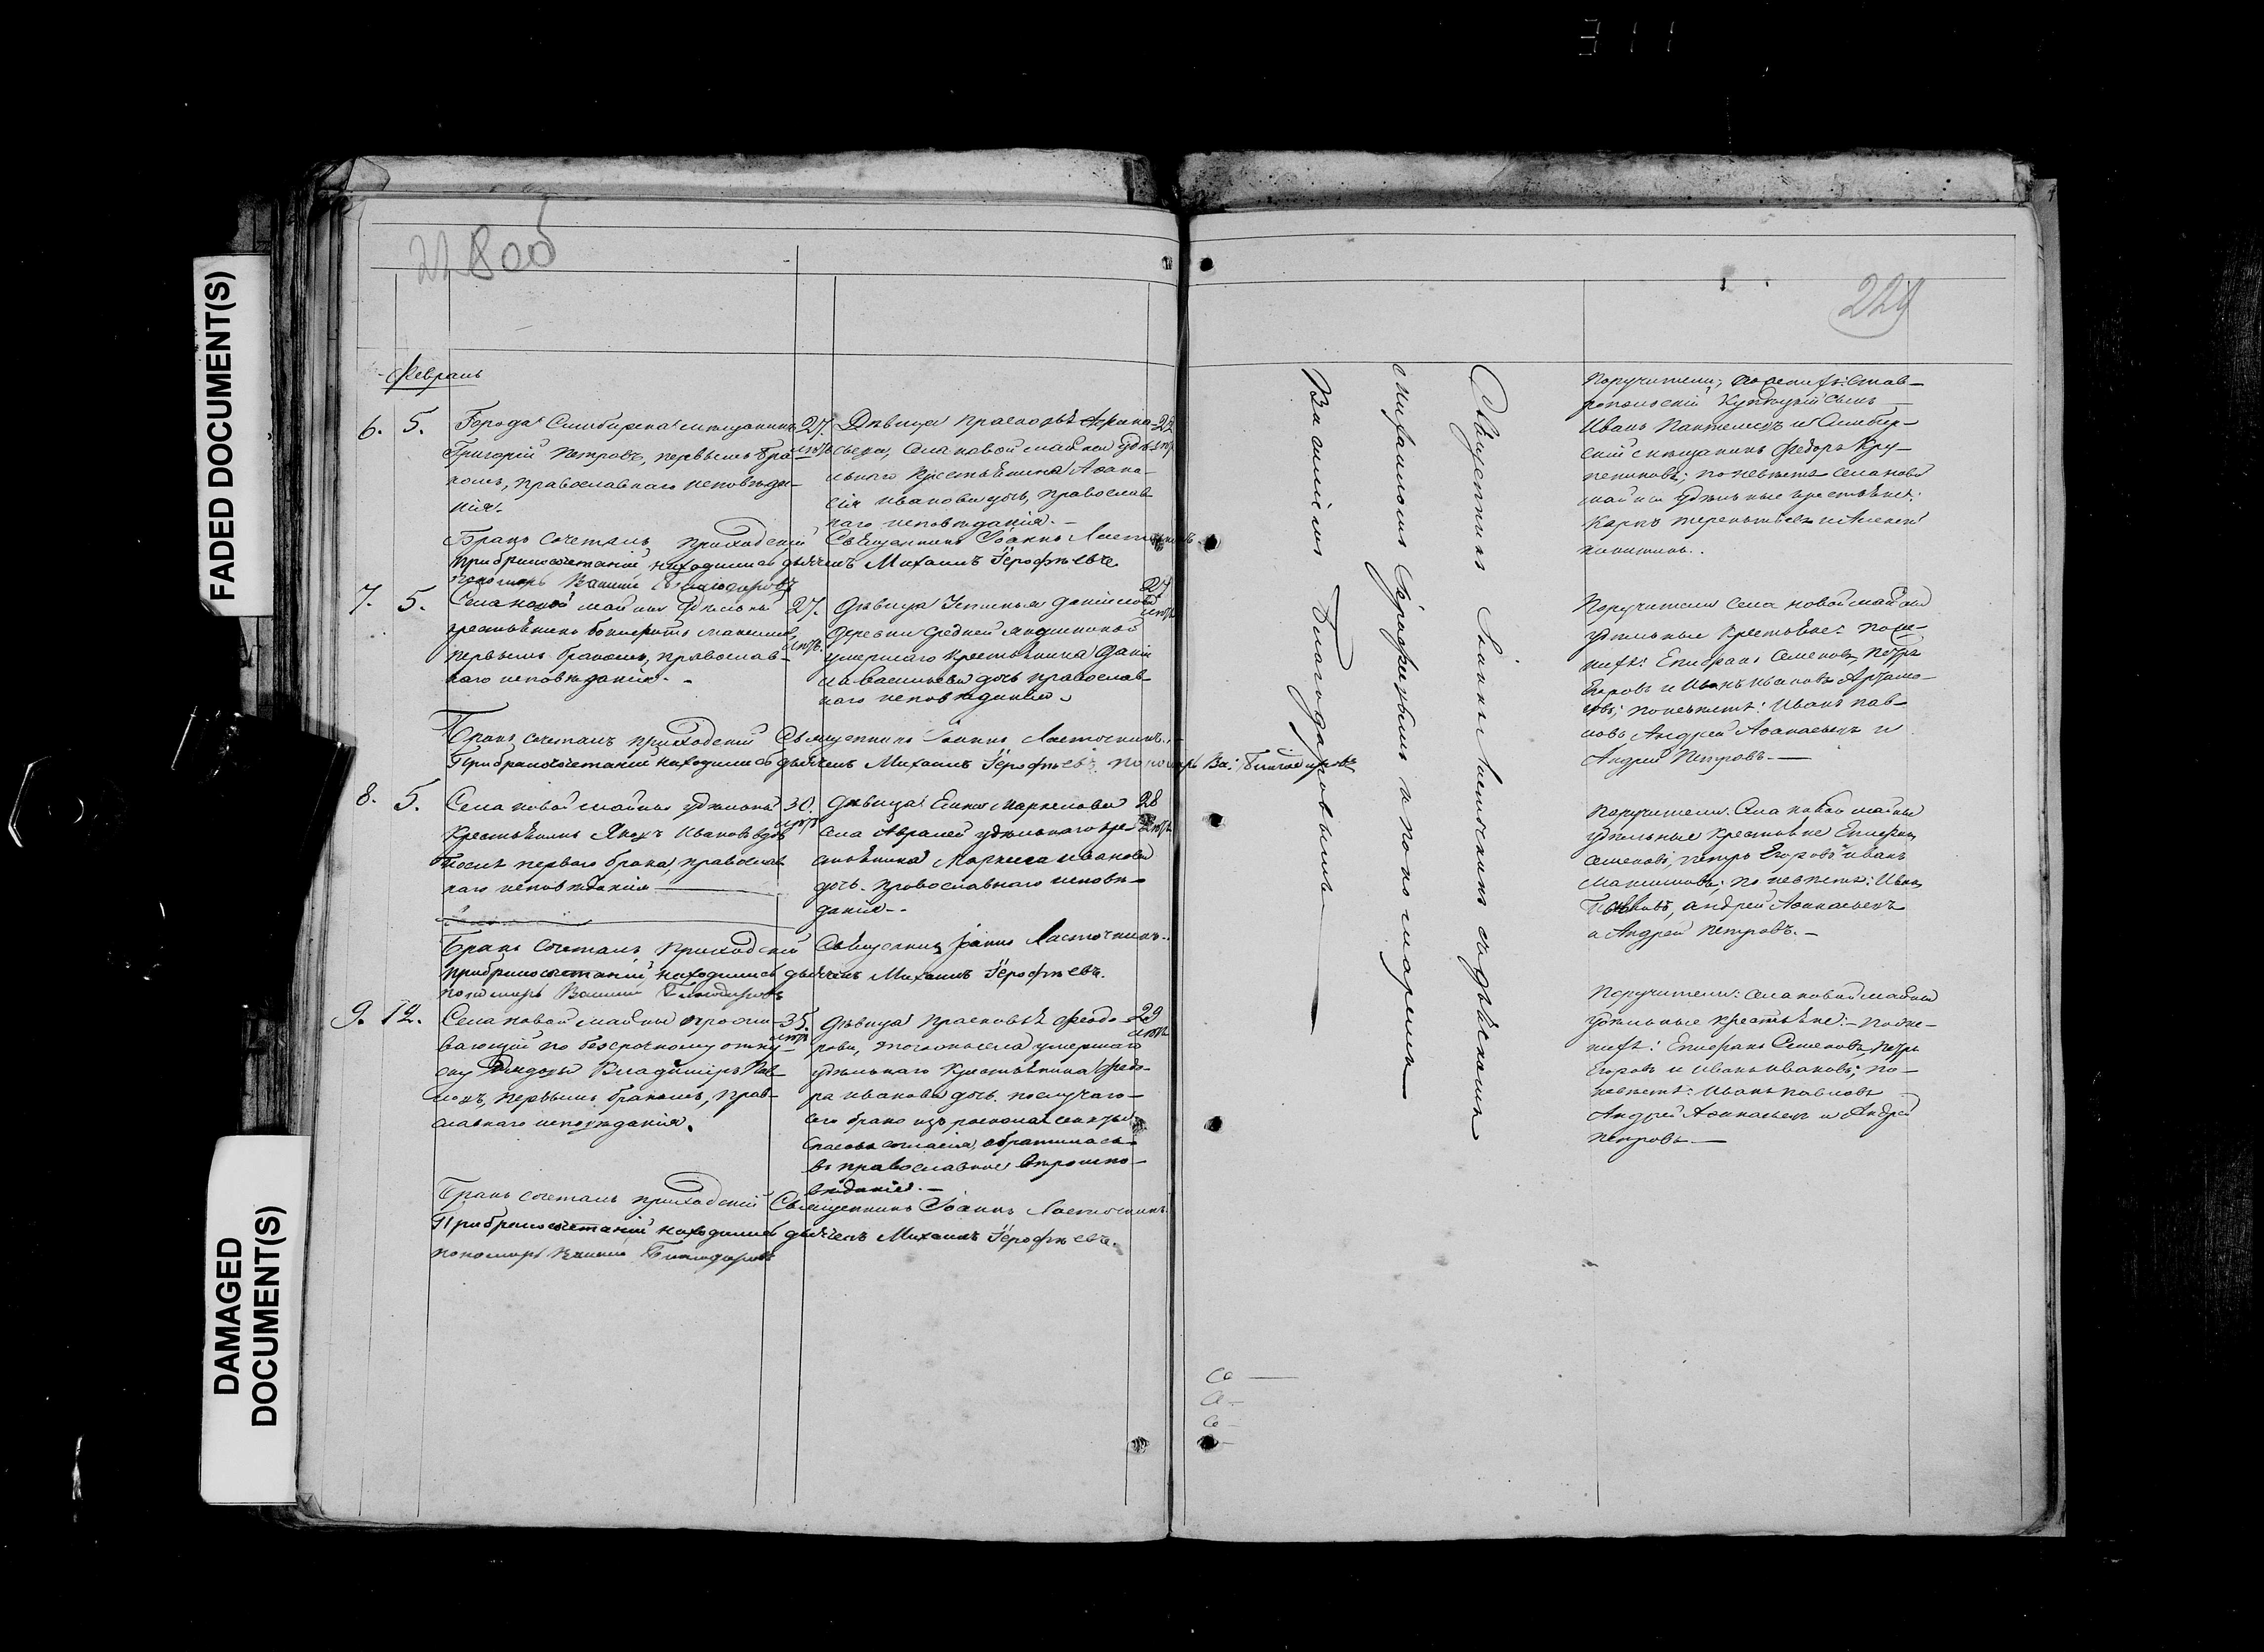 311
FADED DOCUMENT(S)
DAMAGED
DOCUMENT(S)
228об
229
Февраль
6. 5. Города Симбирска мещанинъ
Григорій Петровъ, первымъ бра-
комъ, православнаго исповѣда-
нія.
27.
лѣтъ
Дѣвица Прасковья Афана-
сьева, села новой майны удѣ-
льнаго крестьянина Афана-
сія Иванова дочь, православ
наго исповѣданія. -
22
Бракъ сочеталъ приходскій Священникъ Іоаннъ Ласточкинъ
При бракосочетаніи находились дьячекъ Михаилъ Їерофѣевъ
пономарь Василій Благодаровъ
7. 5. Села новой майны удѣльный
крестьянинъ
первымъ бракомъ, православ-
наго исповѣданія. -
27.
лѣтъ.
дѣвица Устинья Данилова
деревни средней
умершаго крестьянина Дани
ла Васильева дочь православ-
наго исповѣданія.
27
лѣтъ
Бракъ сочеталъ приходскій Священникъ Іоаннъ Ласточкинъ. -
При бракосочетаніи находились дьячекъ Михаилъ Їерофѣевъ пономарь Ва: Благодаровъ
8. 5. Села новой майны удѣльный
крестьянинъ Ивановъ вдов
послѣ перваго брака, православ
наго исповѣданія
30.
лѣтъ
дѣвица Маркелова
села Авралей удѣльнаго кре-
стьянина Маркела Иванова
дочь. православнаго исповѣ-
данія. -
28
лѣтъ
Бракъ сочеталъ приходскій Священникъ Іоаннъ Ласточкинъ.
При бракосочетаніи находились дьячекъ Михаилъ Їерофѣевъ.
пономарь Василій Благодаровъ
9. 12. Села новой майны прожи-
вающій по безсрочному отпу-
ску Владиміръ Пав-
ловъ, первымъ бракомъ, прав-
славнаго исповѣданія.
35.
лѣтъ
дѣвица Прасковья Федо-
рова, тогожъ села умершаго
удѣльнаго крестьянина Федо-
ра Иванова дочь. по случаю
сего брака изъ раскола секты
Спасова согласія, обратилась
въ православное вѣроиспо-
вѣданіе. -
29
лѣтъ
Бракъ сочеталъ приходскій Священникъ Іоаннъ Ласточкинъ
При бракосочетаніи находились дьячекъ Михаилъ Їерофѣевъ.
пономарь Василій Благодаровъ
Священникъ Іоаннъ Ласточкинъ съ дьячкомъ
Михаиломъ Їерофѣевымъ и пономаремъ
Василіемъ Благодаровымъ
Поручители; по женихѣ: Став-
ропольскій купецкій сынъ
Иванъ Пантелеевъ и Симбир-
скій мещанинъ Федоръ Кру-
пениковъ; по невѣстѣ села новой
майны удѣльные крестьяне:
Карпъ Терентьевъ и Алексѣй
Никитинъ.
Поручители села новой майны
удѣльные крестьяне: по же-
нихѣ: Епифанъ Семеновъ, Петръ
Егоровъ и Иванъ Ивановъ
по невѣстѣ: Иванъ Пав-
ловъ Андрей Афанасьевъ и
Андрей Петровъ. -
Поручители. села новой майны
удѣльные крестьяне Епифанъ
Семеновъ, Петръ Егоровъ Иванъ
Максимовъ; по невѣстѣ: Иванъ
Павловъ, Андрей Афанасьевъ
и Андрей Петровъ. -
Поручители: села новой майны
удѣльные крестьяне: - по же-
нихѣ: Епифанъ Семеновъ, Петръ
Егоровъ и Иванъ Ивановъ; по
невѣстѣ: Иванъ Павловъ
Андрей Афанасьевъ и Андрей
Петровъ. -